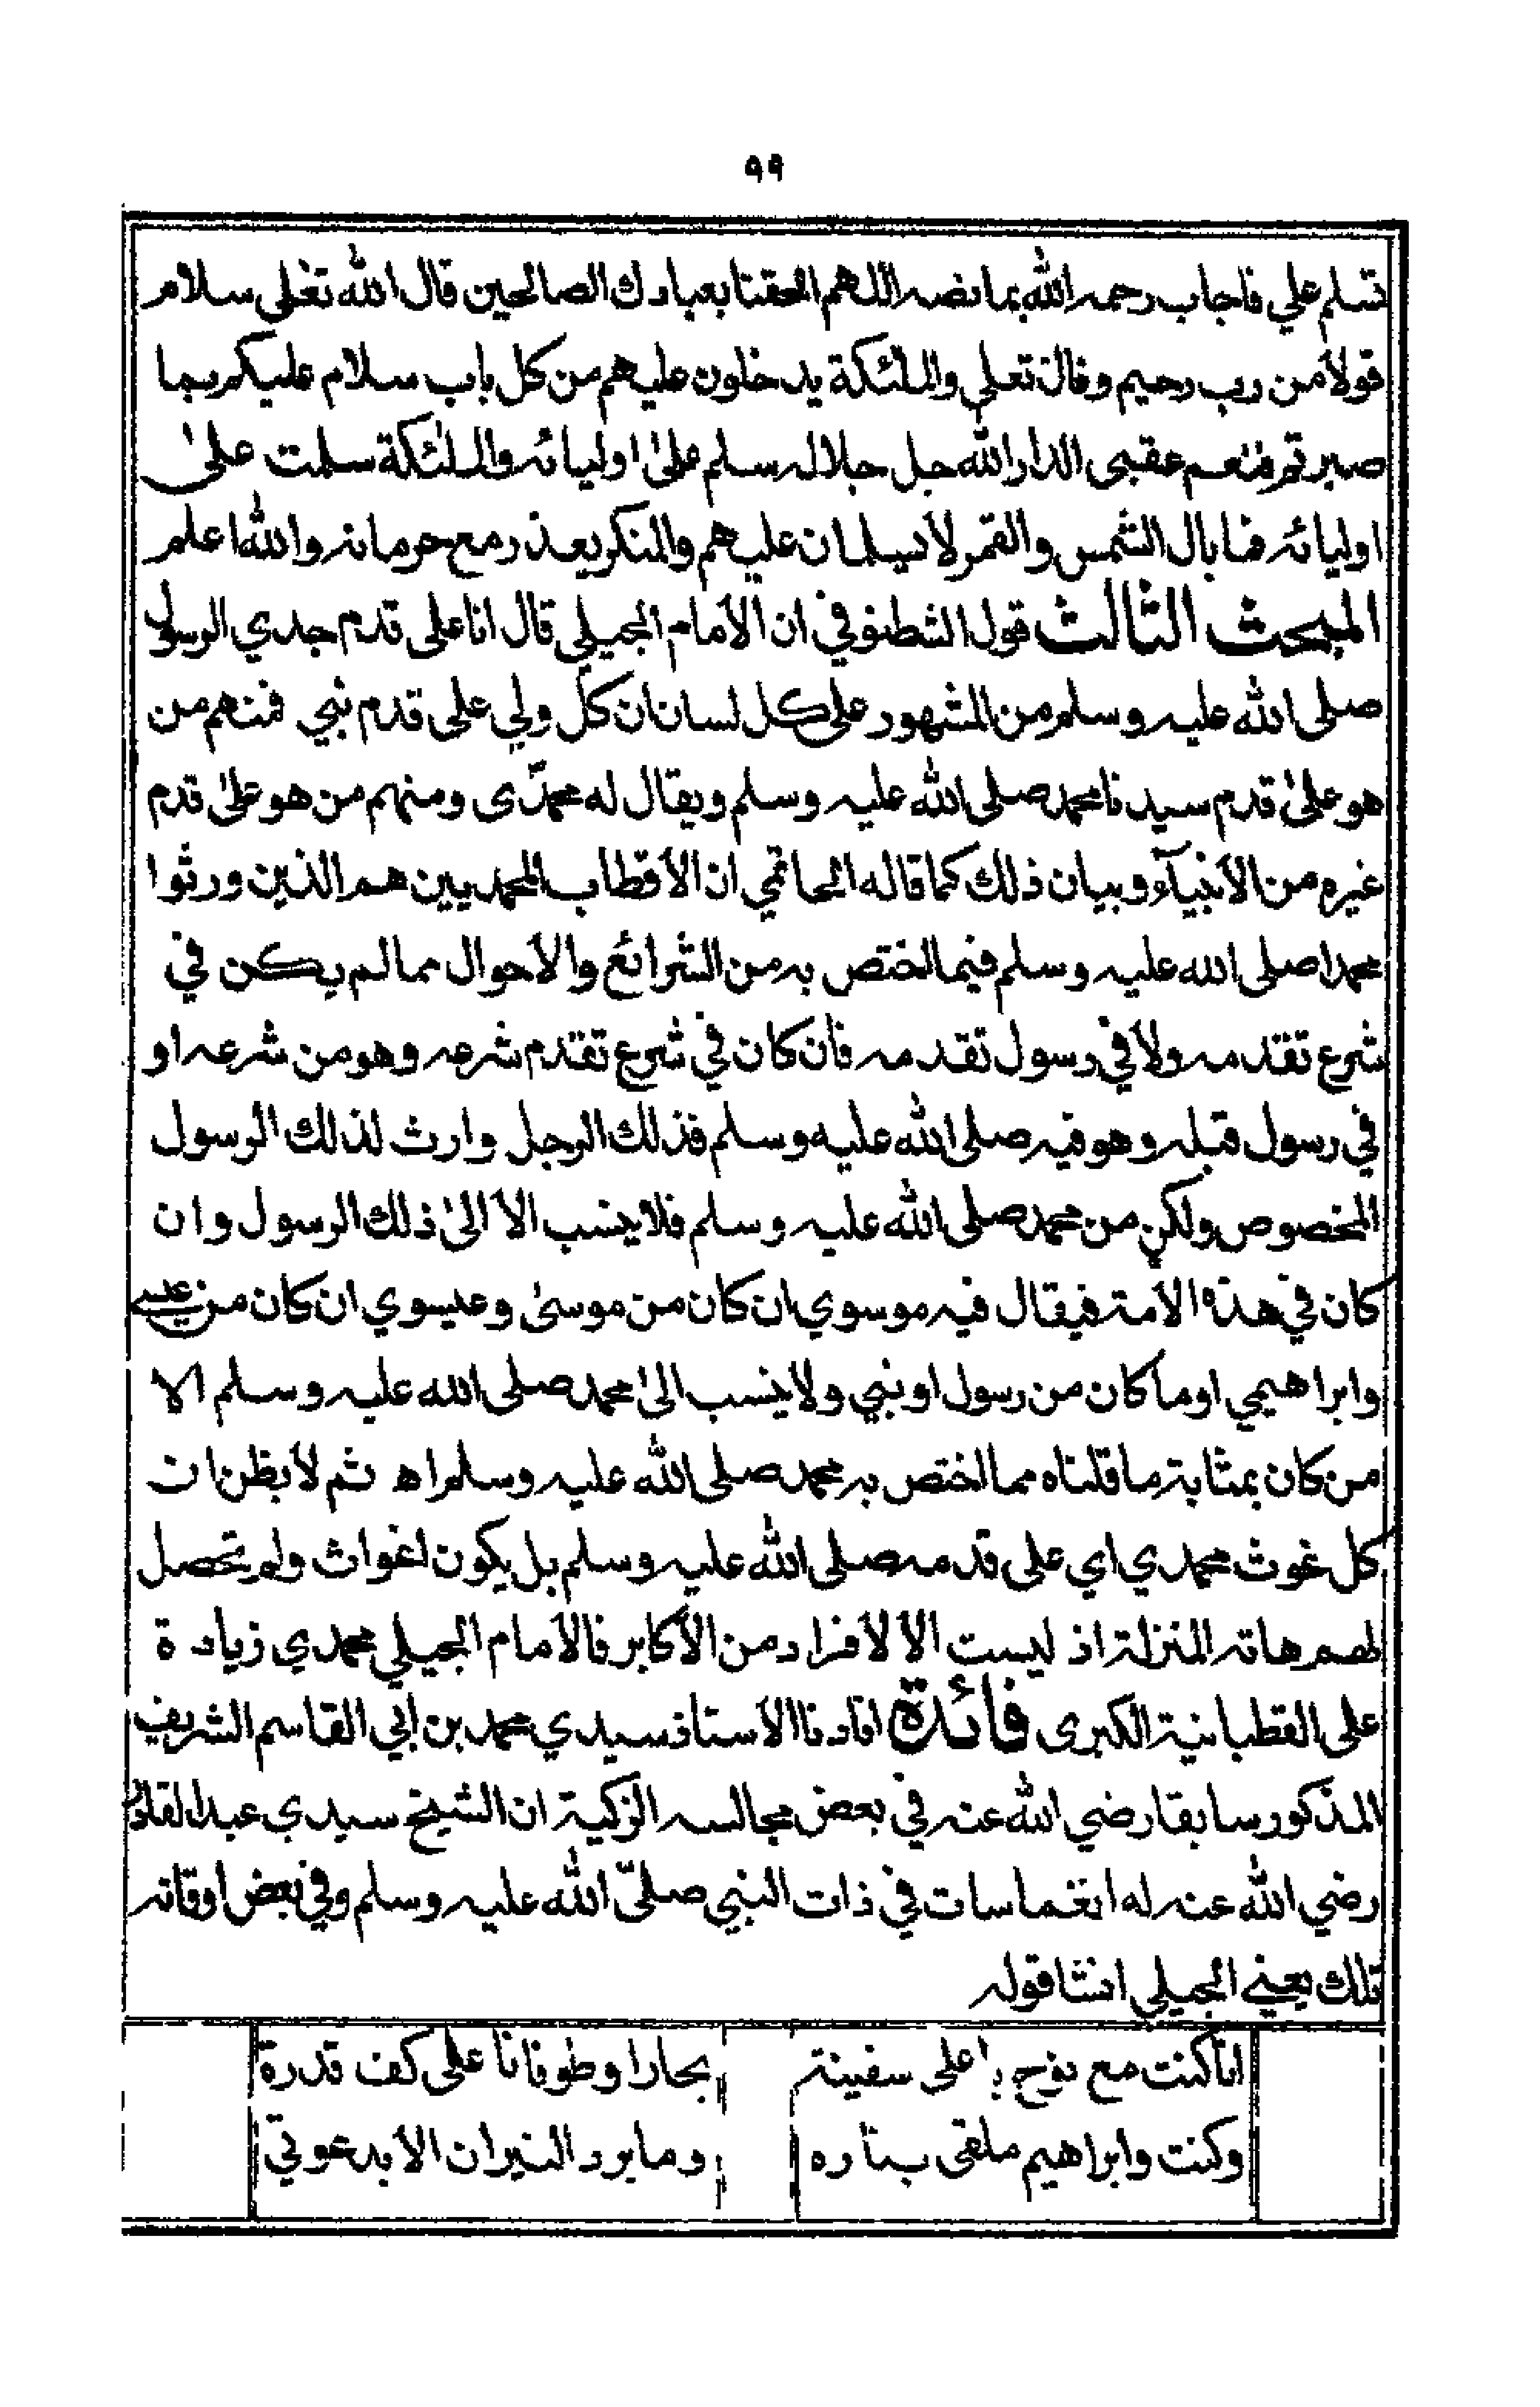 ٩٩
تسلم علي فاجاب رحمه الله بما نصه اللهم الحقنا بعبادك الصالحين قال الله تعلى سلام
قولا من رب رحيم وقال تعلى والملئكة يدخلون عليهم من كل باب سلام عليكم بما
صبرتم فنعم عقبى الدار الله جل جلاله سلم على اوليائه والملئكة سلمت على
اوليائه فما بال الشمس والقمر لا يسلمان عليهم والمنكر يعذر مع حرمانه والله اعلم
المبحث الثالث قول الشطنوفي ان الامام الجيلي قال انا على قدم جدي الرسول
صلى الله عليه وسلم من المشهور على كل لسان ان كل ولي على قدم نبي فمنهم من
هو على قدم سيدنا محمد صلى الله عليه وسلم ويقال له محمدّى ومنهم من هو على قدم
غيره من الانبيآء وبيان ذلك كما قاله الحاتمي ان الاقطاب المحمديين هم الذين ورثوا
محمدا صلى الله عليه وسلم فيما اختص به من الشرائع والاحوال مما لم يكن في
شرع تقدمه ولا في رسول تقدمه فان كان في شرع تقدم شرعه وهو من شرعه او
في رسول قبله وهو فيه صلى الله عليه وسلم فذلك الرجل وارث لذلك الرسول
المخصوص ولكن من محمد صلى الله عليه وسلم فلا ينسب الا الى ذلك الرسول وان
كان في هذه الامة فيقال فيه موسوي ان كان من موسى وعيسوي ان كان من عيسى
وابراهيمي او ما كان من رسول او نبي ولا ينسب الى محمد صلى الله عليه وسلم الا
من كان بمثابة ما قلناه مما اختص به محمد صلى الله عليه وسلم اه ثم لا يظن ان
كل غوث محمدي اي على قدمه صلى الله عليه وسلم بل يكون اغواث ولم تحصل
لهم هاته المنزلة اذ ليست الا لافراد من الاكابر فالامام الجيلي محمدي زيادة
على القطبانية الكبرى فائدة افادنا الاستاذ سيدي محمد بن ابي القاسم الشريف
المذكور سابقا رضي الله عنه في بعض مجالسه الزكية ان الشيخ سيدي عبد القادر
رضي الله عنه له انغماسات في ذات النبي صلىّ الله عليه وسلم وفي بعض اوقاته
تلك يعني الجيلي انشا قوله
انا كنت مع نوح با على سفينة بحارا وطوفانا على كف قدرة
وكنت وابراهيم ملقى بناره وما برد النيران الا بدعوتي